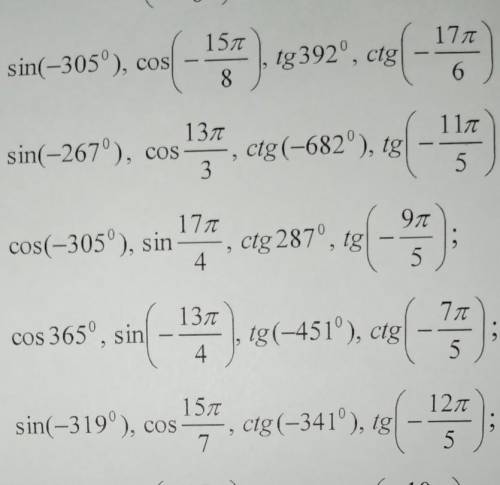 sin(−305⁰), cos(−15π/8), tg392⁰, ctg(−17π/6)
sin(−267⁰), cos 13π/3, ctg(−682⁰), tg(−11π/5)
cos(−305⁰), sin 17π/4, ctg 287⁰, tg(−9π/5);
cos 365⁰, sin(−13π/4), tg(−451⁰), ctg(−7π/5);
sin(−319⁰), cos 15π/7, ctg(−341⁰), tg(−12π/5);